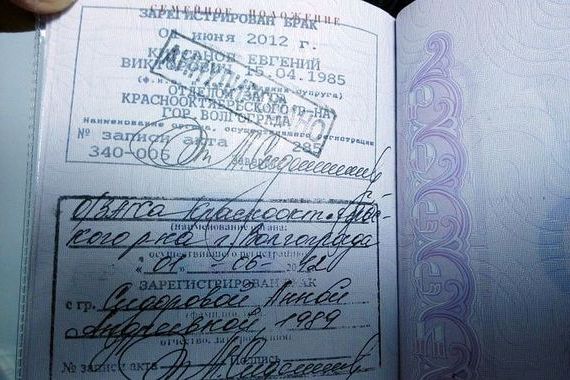 СЕМЕЙНОЕ ПОЛОЖЕНИЕ
ЗАРЕГИСТРИРОВАН БРАК
июня 2012 г.
ЕВГЕНИЙ
15.04.1985
ОТДЕЛОМ ЗАГСА
КРАСНООКТЯБРЬСКОГО Р-НА
ГОР. ВОЛГОГРАДА
Наименование органа, осуществившего регистрацию
№ записи акта 285
340-006
О/ЗАГСа Краснооктябрьс-
кого р-на г. Волгограда
(наименование органа,
осуществившего регистрацию)
"01" 06
ЗАРЕГИСТРИРОВАН БРАК
с гр. Сидоровой Анной
Андреевной, 1989
отчество, дата
№ записи акта Подпись